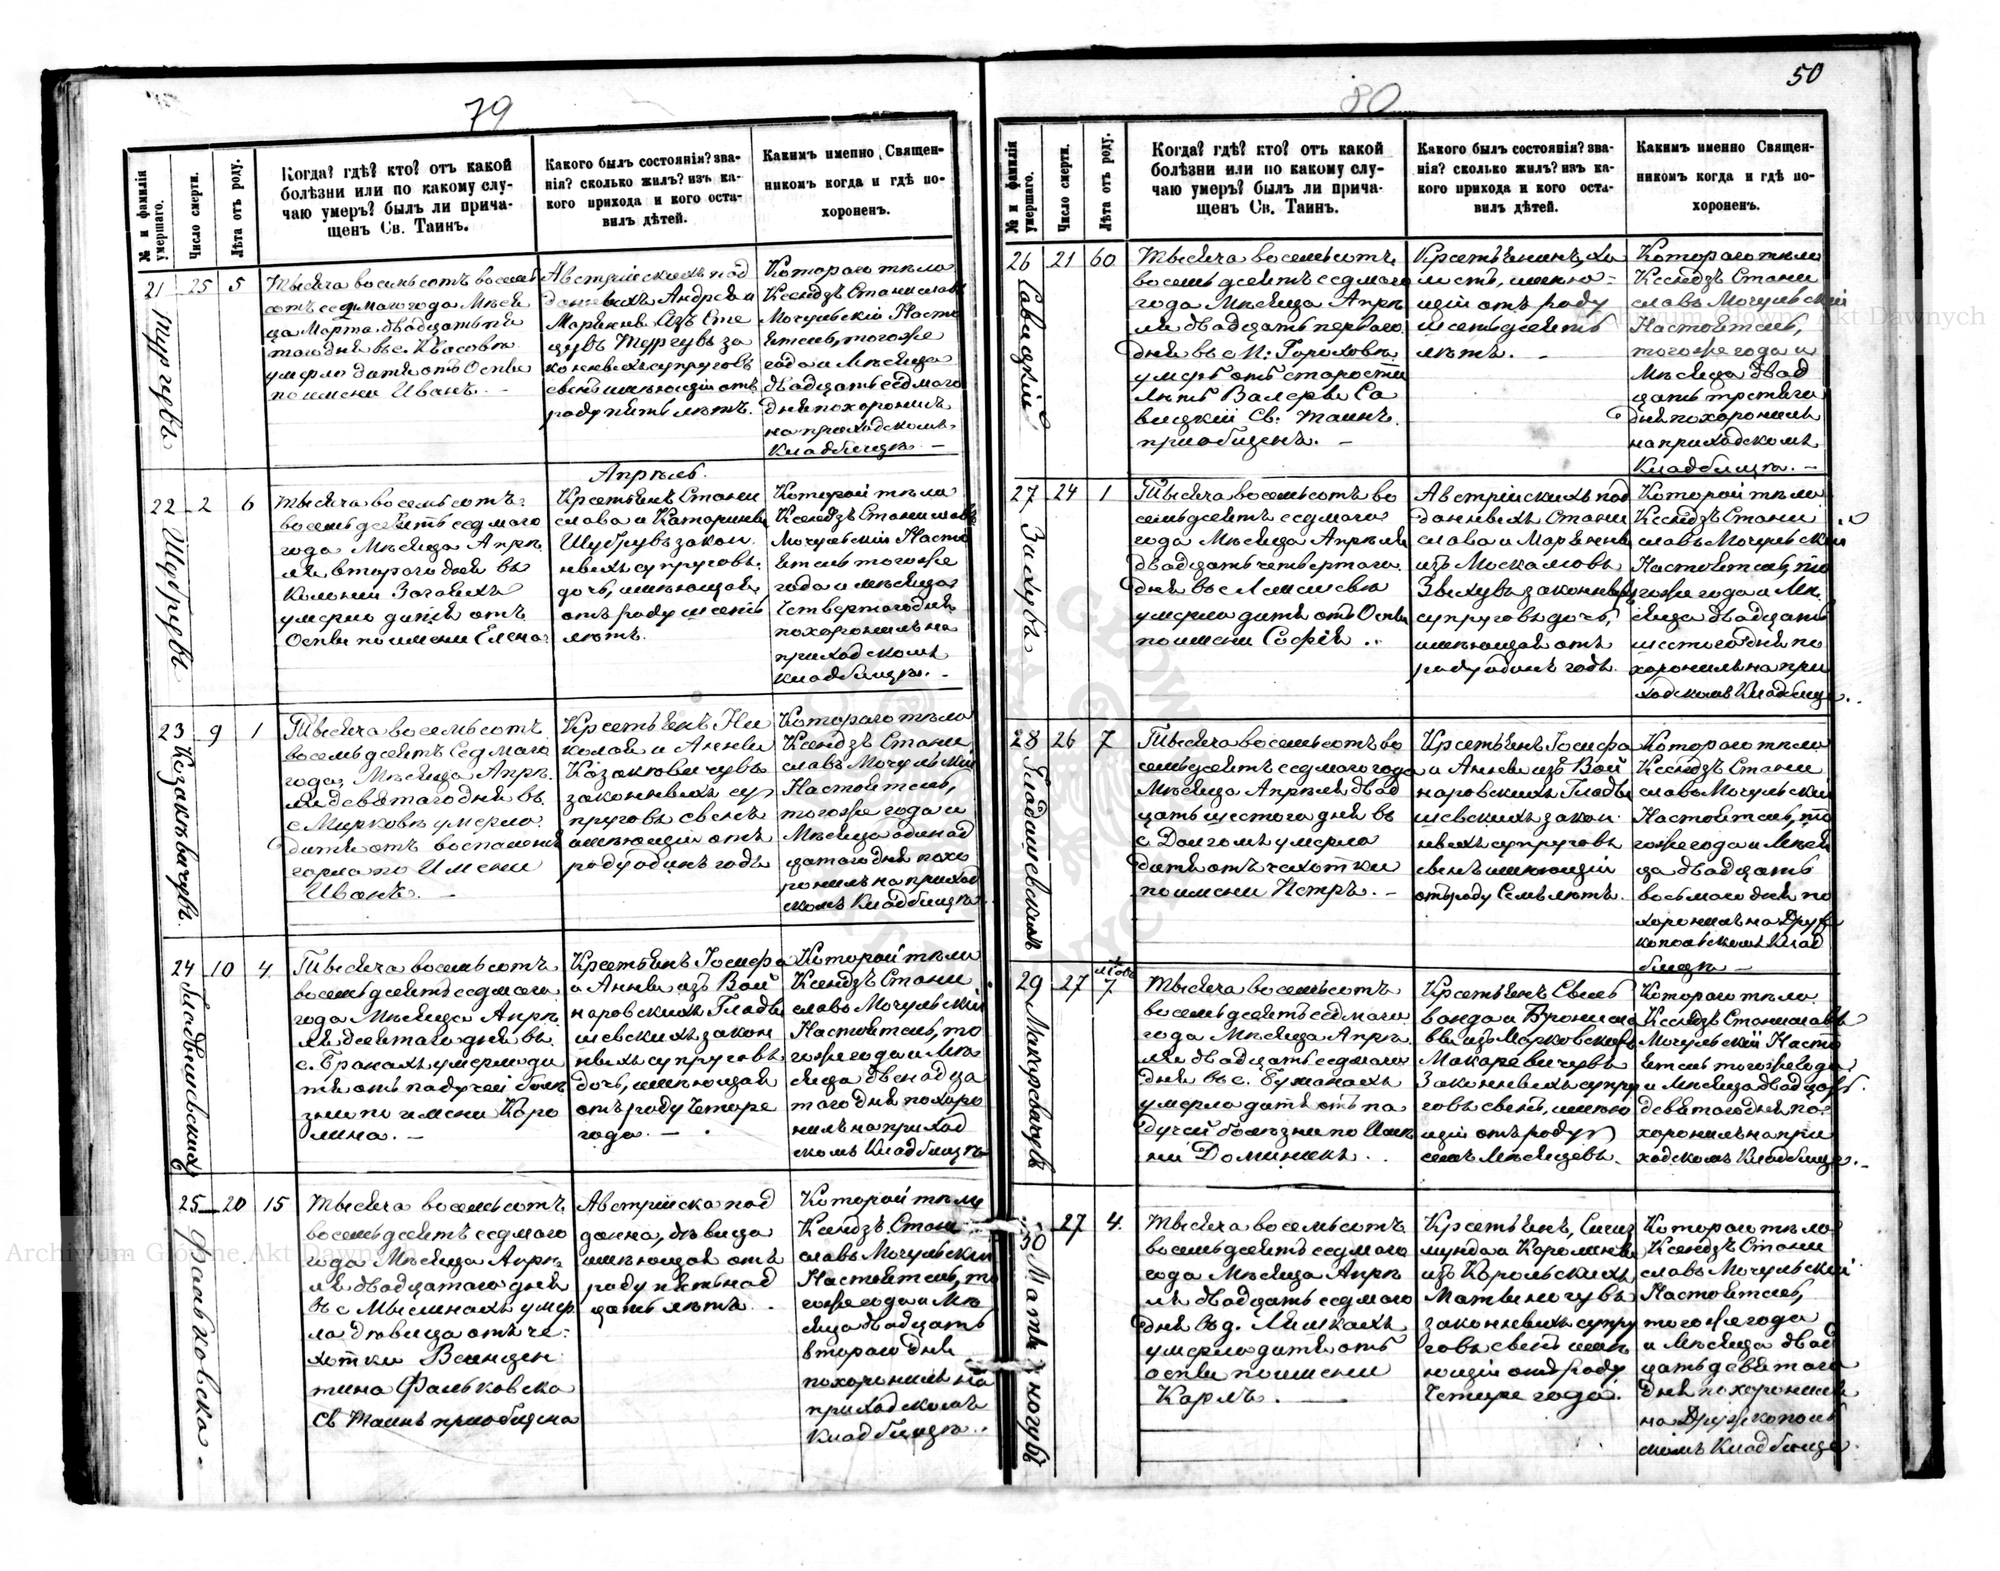 79
№ и фамилія умершаго.
Число смерти.
Лѣта отъ роду.
Когда? гдѣ? кто? отъ какой
болѣзни или по какому слу-
чаю умеръ? былъ ли прича-
щенъ Св. Таинъ.
Какого былъ состоянія? зва-
нія? сколько жилъ? изъ ка-
кого прихода и кого оста-
вилъ дѣтей.
Какимъ именно Священ-
никомъ когда и гдѣ по-
хороненъ.
21
25
5
Тысяча восемьсотъ восемь
сотъ седмаго года Мѣся
ца Марта двадцать пя
таго дня въ с. Квасовѣ
умерло дитя отъ Оспы
по имени Иванъ. -
Австрійскихъ под
данныхъ Андрея и
Маріянны изъ Сте
цувъ Тургувъ за
конныхъ супруговъ
сынъ имѣющій отъ
роду пять лѣтъ.
Котораго тѣло
Ксендзъ Станиславъ
Мочульскій Насто
ятель, тогоже
года и Мѣсяца
двадцать седмаго
дня похоронилъ
на приходскомъ
Кладбищѣ. -
Апрѣль.
22
2
6
Шубрувъ
Тысяча восемьсотъ
восемьдесятъ седмаго
года Мѣсяца Апрѣ
ля втораго дня въ
Колоніи Загаяхъ
умерло дитя отъ
Оспы по имени Елена
Крестьянъ Стани
слава и Катарины
Шубрувъ закон
ныхъ супруговъ
дочь, имѣющая
отъ роду шесть
лѣтъ.
Которой тѣло
Ксендзъ Станиславъ
Мочульскій Насто
ятель тогоже
года и мѣсяца
Четвертаго дня
похоронилъ на
приходскомъ
Кладбищѣ. -
23
9
1
Козакѣвичувъ
Тысяча восемьсотъ
восемьдесятъ Седмаго
года, Мѣсяца Апрѣ
ля девятаго дня въ
с. Мирковѣ умерло
дитя отъ воспаленія
горла по Имени
Иванъ. -
Крестьянъ Ни
колая и Анны
Козакѣвичувъ
законныхъ су
пруговъ сынъ
имѣющій отъ
роду одинъ годъ
Котораго тѣло
Ксендзъ Стани
славъ Мочульскій
Настоятель,
тогоже года и
Мѣсяца одинад
цатаго дня похо
ронилъ на приход
скомъ Кладбищѣ.
24
10
4
Тысяча восемьсотъ
восемьдесятъ седмаго
года Мѣсяца Апрѣ
ля десятаго дня въ
с. Бранахъ умерло ди
тя отъ падучей болѣ
зни по имени Каро
лина. -
Крестьянъ Іосифа
и Анны изъ Вой
наровскихъ Глады
шевскихъ закон
ныхъ супруговъ
дочь, имѣющая
отъ роду Четыре
года. -
Которой тѣло
Ксендзъ Стани
славъ Мочульскій
Настоятель, то
гоже года и Мѣ
сяца двенадца
таго дня похоро
нилъ на приход
скомъ Кладбищѣ
25
20
15
Фальковска
Тысяча восемьсотъ
восемьдесятъ седмаго
года Мѣсяца Апрѣ
ля двадцатаго дня
въ с Мыслинахъ умер
ла дѣвица отъ че-
хотки Валицен
тина Фальковска
Св Таинъ приобщена
Австрійска под
данна, дѣвица
имѣющая отъ
роду пятьнад
цать лѣтъ.
Которой тѣло
Ксендзъ Стани
славъ Мочульскій
Настоятель, то
гоже года и Мѣ
сяца двадцать
втораго дня
похоронилъ на
приходскомъ
Кладбищѣ.
80
50
№ и фамилія умершаго.
Число смерти.
Лѣта отъ роду.
Когда? гдѣ? кто? отъ какой
болѣзни или по какому слу-
чаю умеръ? былъ ли прича-
щенъ Св. Таинъ.
Какого былъ состоянія? зва-
нія? сколько жилъ? изъ ка-
кого прихода и кого оста-
вилъ дѣтей.
Какимъ именно Священ-
никомъ когда и гдѣ по-
хороненъ.
26
21
60
Савицкій
Тысяча восемьсотъ
восемьдесятъ седмаго
года Мѣсяца Апрѣ
ля двадцать перваго
дня въ с М: Гороховѣ
умеръ отъ старости
лѣтъ Валеръ Са
вицкій Св. Таинъ
приобщенъ. -
Крестьянинъ, хо
лостъ, имѣю-
щій отъ роду
шестьдесятъ
лѣтъ. -
Котораго тѣло
Ксендзъ Стани
славъ Мочульскій
Настоятель,
тогоже года и
Мѣсяца двад
цать третяго
дня похоронилъ
на приходскомъ
Кладбищѣ. -
27
24
1
Зыхувъ
Тысяча восемьсотъ во
семьдесятъ седмаго
года Мѣсяца Апрѣля
двадцать четвертаго
дня въ с Лемешевѣ
умерло дитя отъ Оспы
по имени Софія ..
Австрійскихъ под
данныхъ Стани
слава и Маріянны
изъ Москаловъ
Зыхувъ законныхъ
супруговъ дочь,
имѣющая отъ
роду одинъ годъ.
Которой тѣло
Ксендзъ Стани
славъ Мочульскій
Настоятель, то
гоже года и Мѣ
сяца двадцать
шестого дня по
хоронилъ на при
ходскомъ Кладбищѣ.
28
26
7
Гладышевскихъ
Тысяча восемьсотъ во
семьдесятъ седмаго года
Мѣсяца Апрѣля двад
цать шестого дня въ
с Долгомъ умерло
дитя отъ чехотки
по имени Петръ. -
Крестьянъ Іосифа
и Анны изъ Вой
наровскихъ Глады
шевскихъ закон
ныхъ супруговъ
сынъ имѣющій
отъ роду Семь лѣтъ.
Котораго тѣло
Ксендзъ Стани
славъ Мочульскій
Настоятель, то
гоже года и Мѣся
ца двадцать
восьмаго дня по
хоронилъ на Друж
копольскомъ Клад
бищѣ -
29
27
7
Макаревичувъ
Тысяча восемьсотъ
восемьдесятъ седмаго
года Мѣсяца Апрѣ
ля двадцать седмаго
дня въ с. Буманахъ
умерло дитя отъ па
дучей болѣзни по Име
ни Доминикъ .
Крестьянъ Сыль
вандa и Бронисла
вы изъ Марковскихъ
Макаревичувъ
Законныхъ супру
говъ сынъ, имѣю
щій отъ роду
семь Мѣсяцевъ.
Котораго тѣло
Ксендзъ Станиславъ
Мочульскій Насто
ятель тогоже года
и Мѣсяца двадцать
девятаго дня по-
хоронилъ на при
ходскомъ Кладбищѣ. -
30
27
4.
Тысяча восемьсотъ
восемьдесятъ седмаго
года Мѣсяца Апрѣ
ля двадцать седмаго
дня въ д. Лишкахъ
умерло дитя отъ
оспы по имени
Карлъ. -
Крестьянъ, Сигиз
мунда и Каролины
изъ Карольскихъ
законныхъ супру
говъ сынъ имѣ
ющій отъ роду
Четыре года.
Котораго тѣло
Ксендзъ Стани
славъ Мочульскій
Настоятель,
тогоже года
и Мѣсяца двад
цать девятаго
дня похоронилъ
на Дружкополь
скомъ Кладбищѣ
Archiwum Główne Akt Dawnych
Archiwum Główne Akt Dawnych